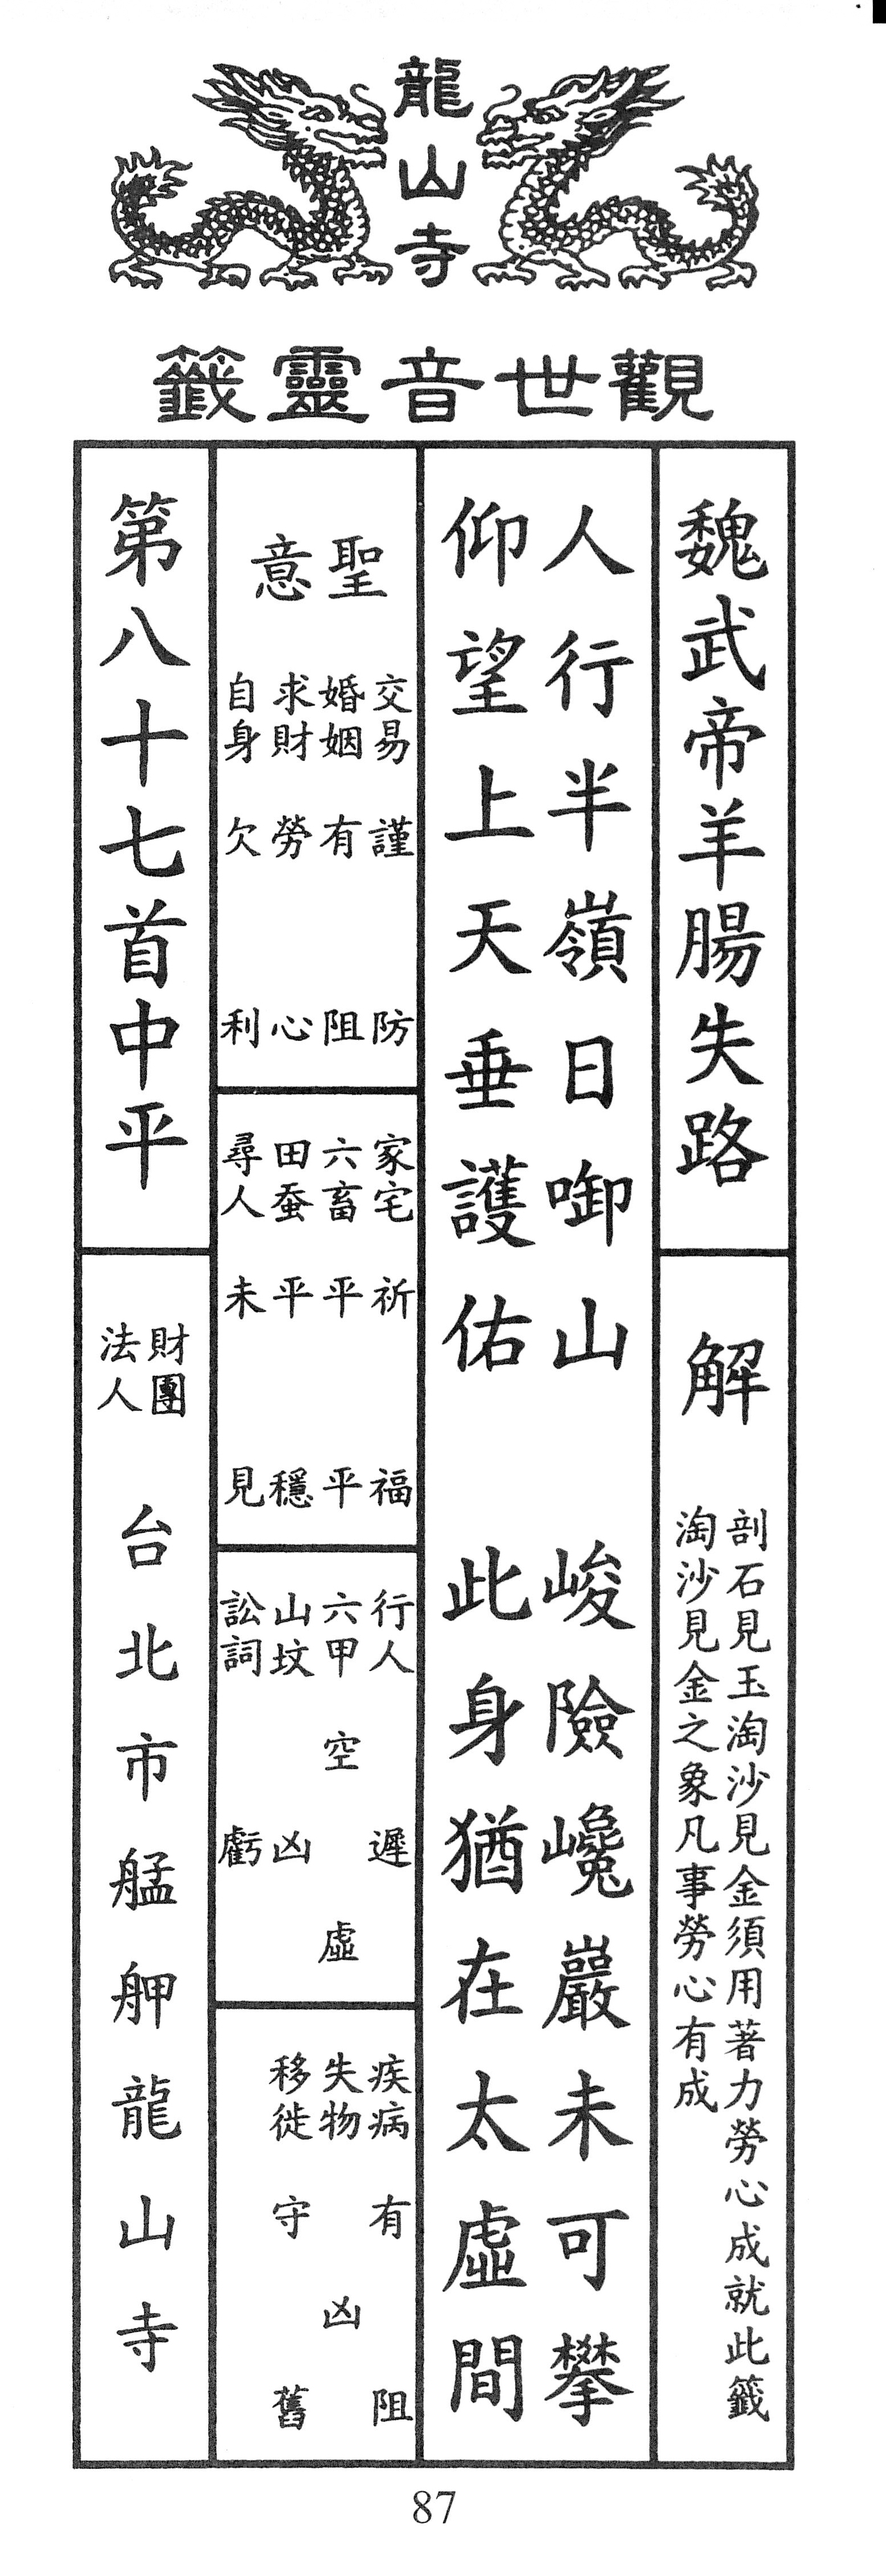 龍山寺
觀世音靈籤
魏武帝羊腸失路
解
剖石見玉淘沙見金須用著力勞心成就此籤
淘沙見金之象凡事勞心有成
人行半嶺日啣山 峻險巉巖未可攀
仰望上天垂護佑 此身猶在太虛間
聖意
交易 謹防
婚姻 有阻
求財 勞心
自身 欠利
家宅 祈福
六畜 平平
田蚕 平穩
尋人 未見
行人 遲
六甲 空虛
山坟 凶
訟詞 虧
疾病 有阻
失物 凶
移徙 守舊
第八十七首中平
財團法人
台北市艋舺龍山寺
87